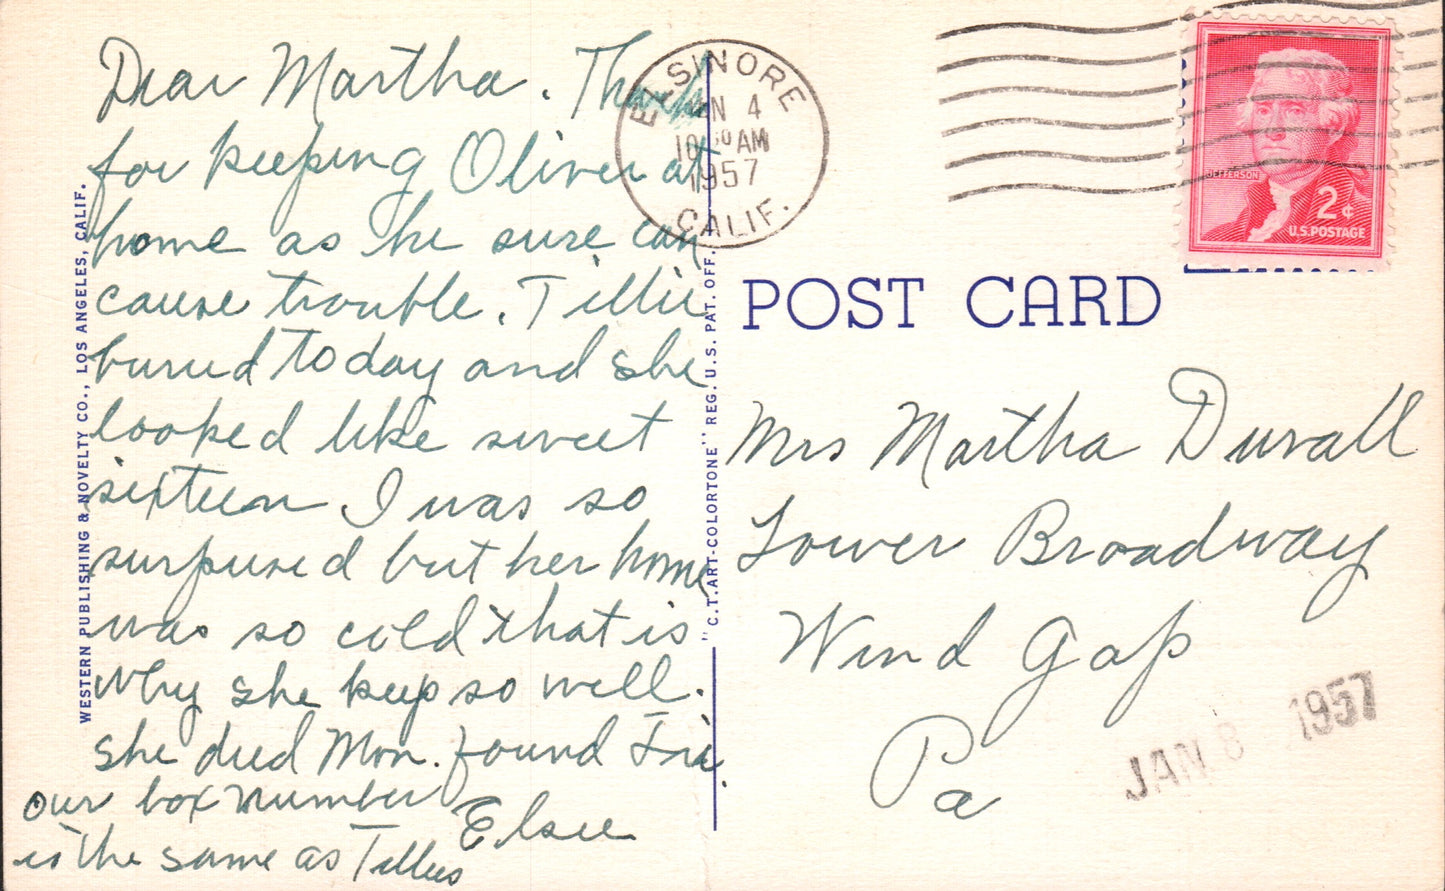 Dear Martha. Thanks
for keeping Oliver at
home as he sure can
cause trouble. Tillie
buried today and she
looked like sweet
sixteen I was so
surprised but her home
was so cold that is
why she keep so well.
she died Mon. found Fri.
our box number
is the same as Tillies
Elsie
WESTERN PUBLISHING & NOVELTY CO., LOS ANGELES, CALIF.
"C.T. ART-COLORTONE" REG. U.S. PAT. OFF.
ELSINORE
JAN 4
10 30 AM
1957
CALIF.
JEFFERSON
2¢
U.S. POSTAGE
POST CARD
Mrs Martha Duvall
Lower Broadway
Wind Gap
Pa
JAN 8 1957